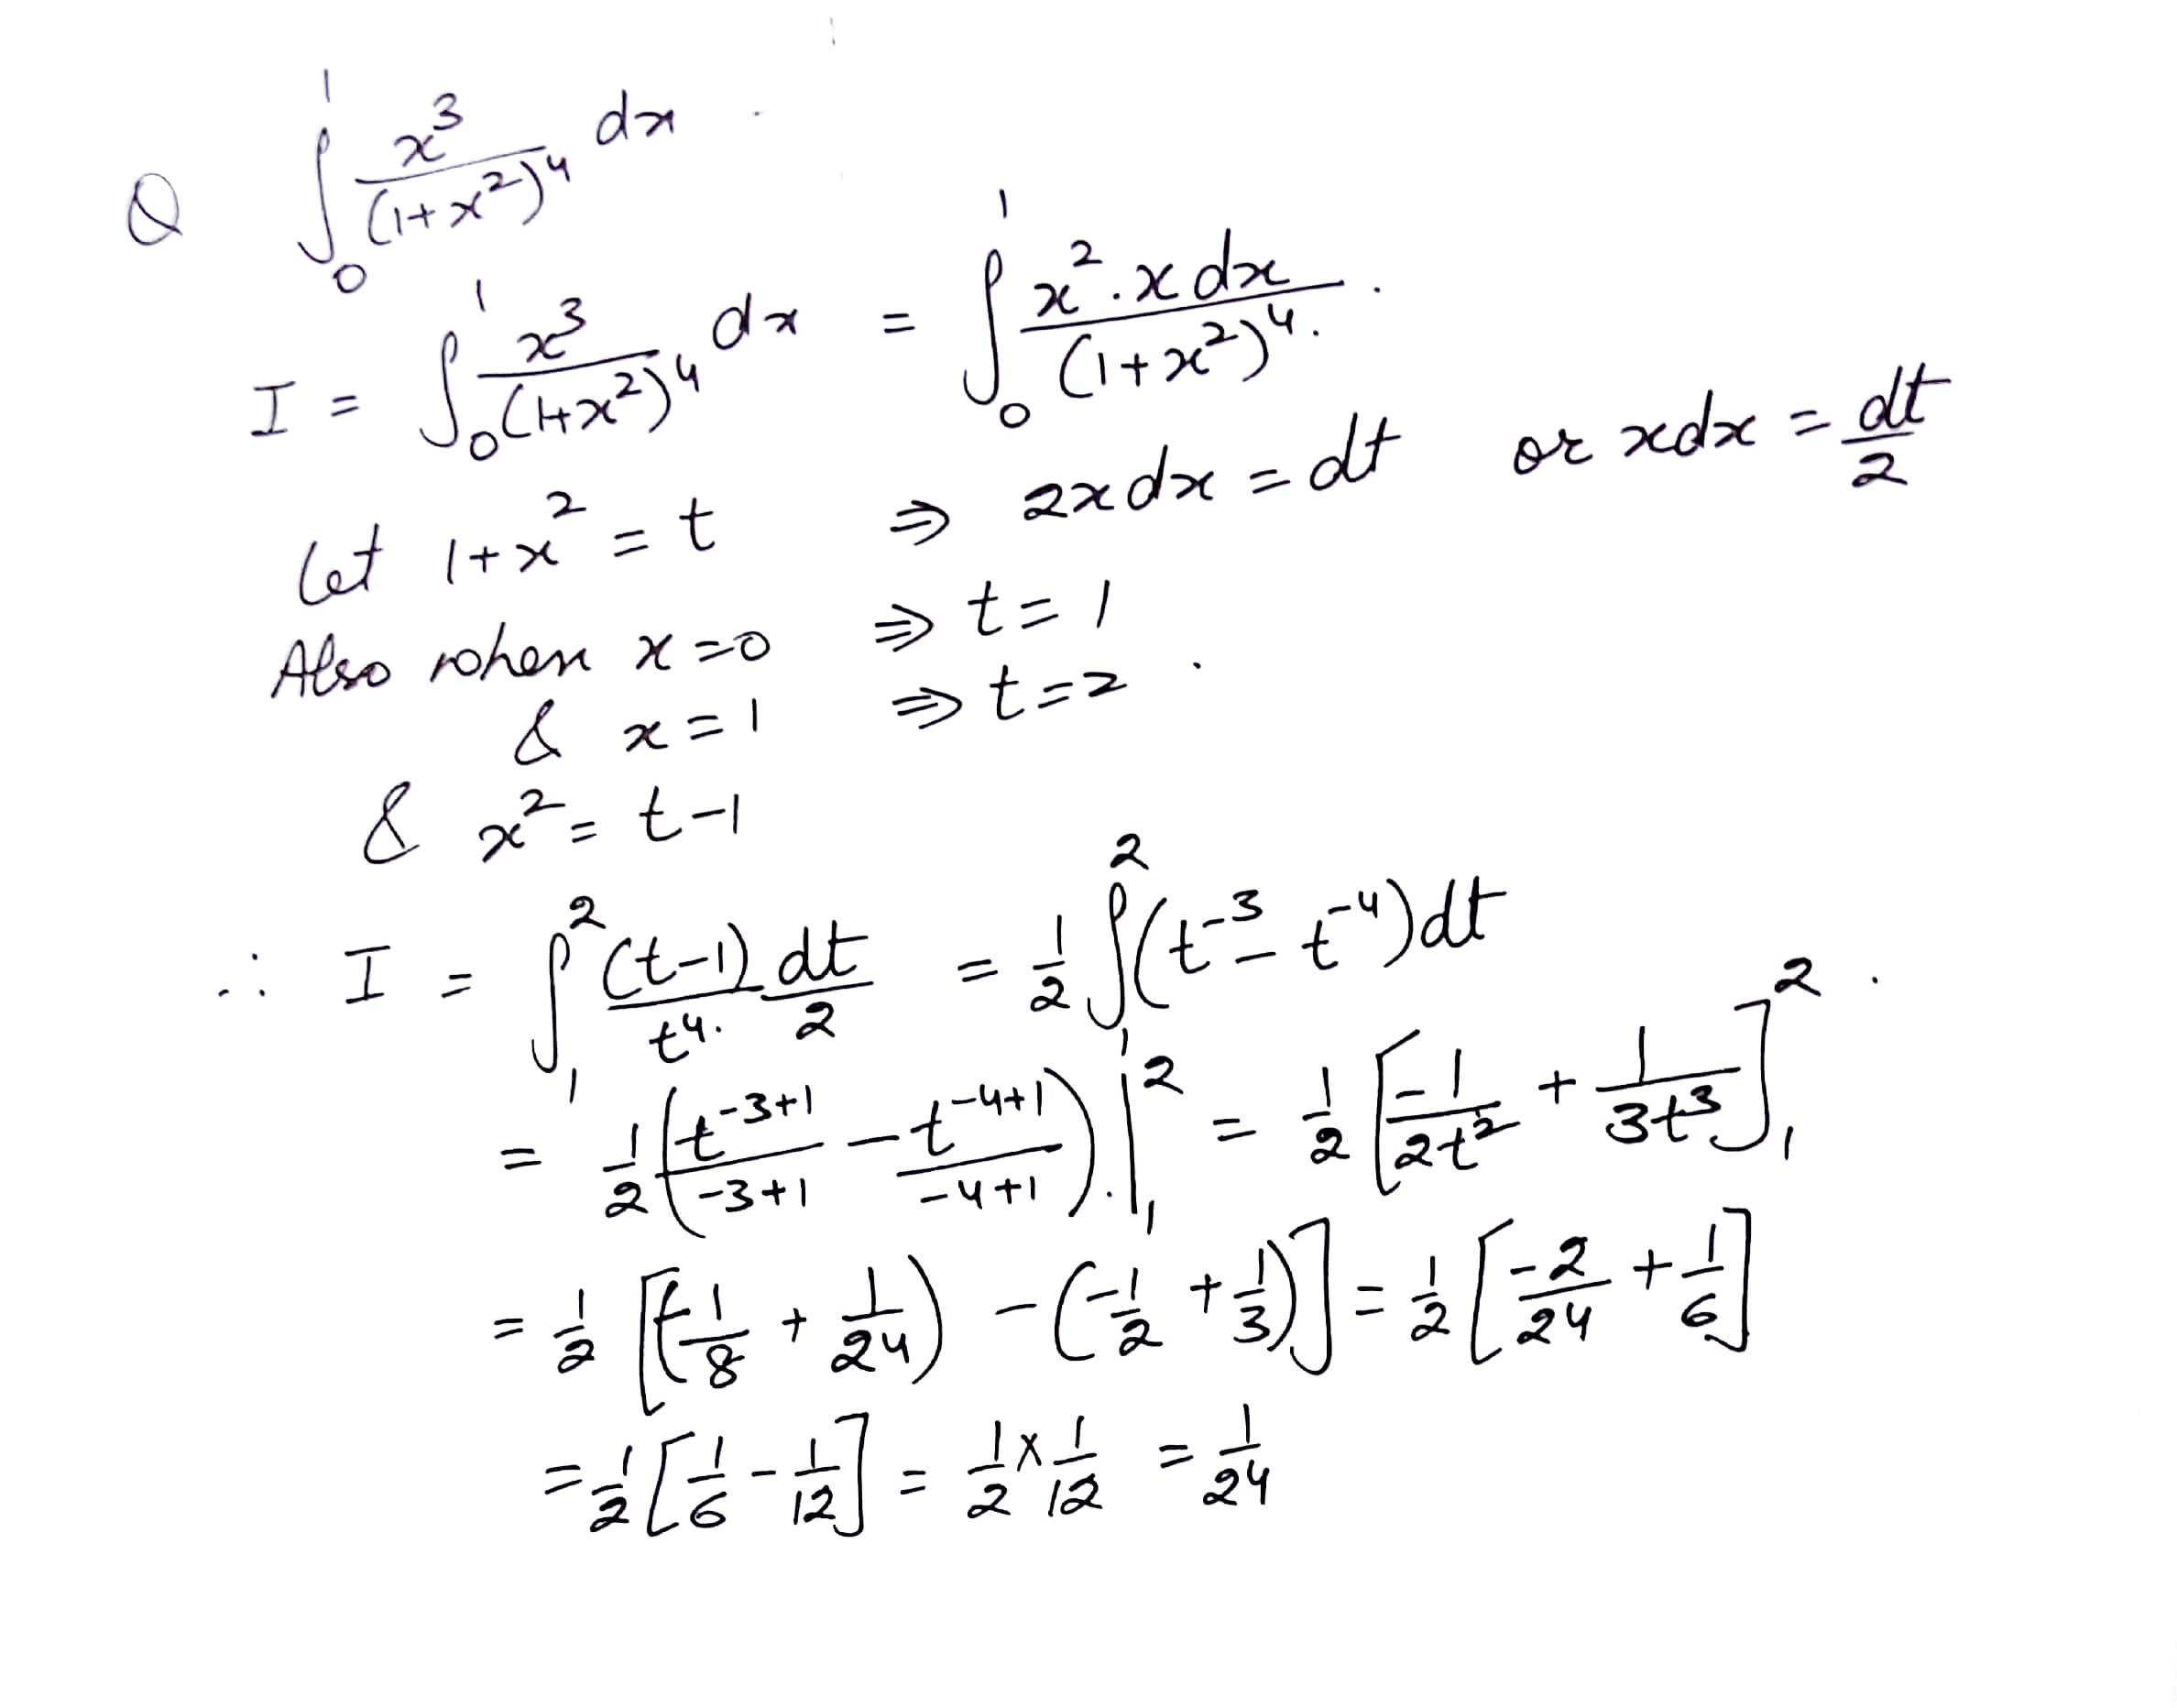 Q ∫₀¹ x³/(1+x²)⁴ dx .
I = ∫₀¹ x³/(1+x²)⁴ dx = ∫₀¹ x².x dx/(1+x²)⁴. .
Let 1+x² = t ⇒ 2x dx = dt or xdx = dt/2
Also when x=0 ⇒ t=1
& x=1 ⇒ t=2 .
& x² = t-1
∴ I = ∫₁² (t-1)/t⁴. dt/2 = 1/2 ∫₁² (t⁻³ - t⁻⁴)dt
= 1/2 (t⁻³⁺¹/(-3+1) - t⁻⁴⁺¹/(-4+1)).|₁² = 1/2 [-1/(2t²) + 1/(3t³)]₁² .
= 1/2 [(-1/8 + 1/24) - (-1/2 + 1/3)] = 1/2 [-2/24 + 1/6]
= 1/2 [1/6 - 1/12] = 1/2 × 1/12 = 1/24